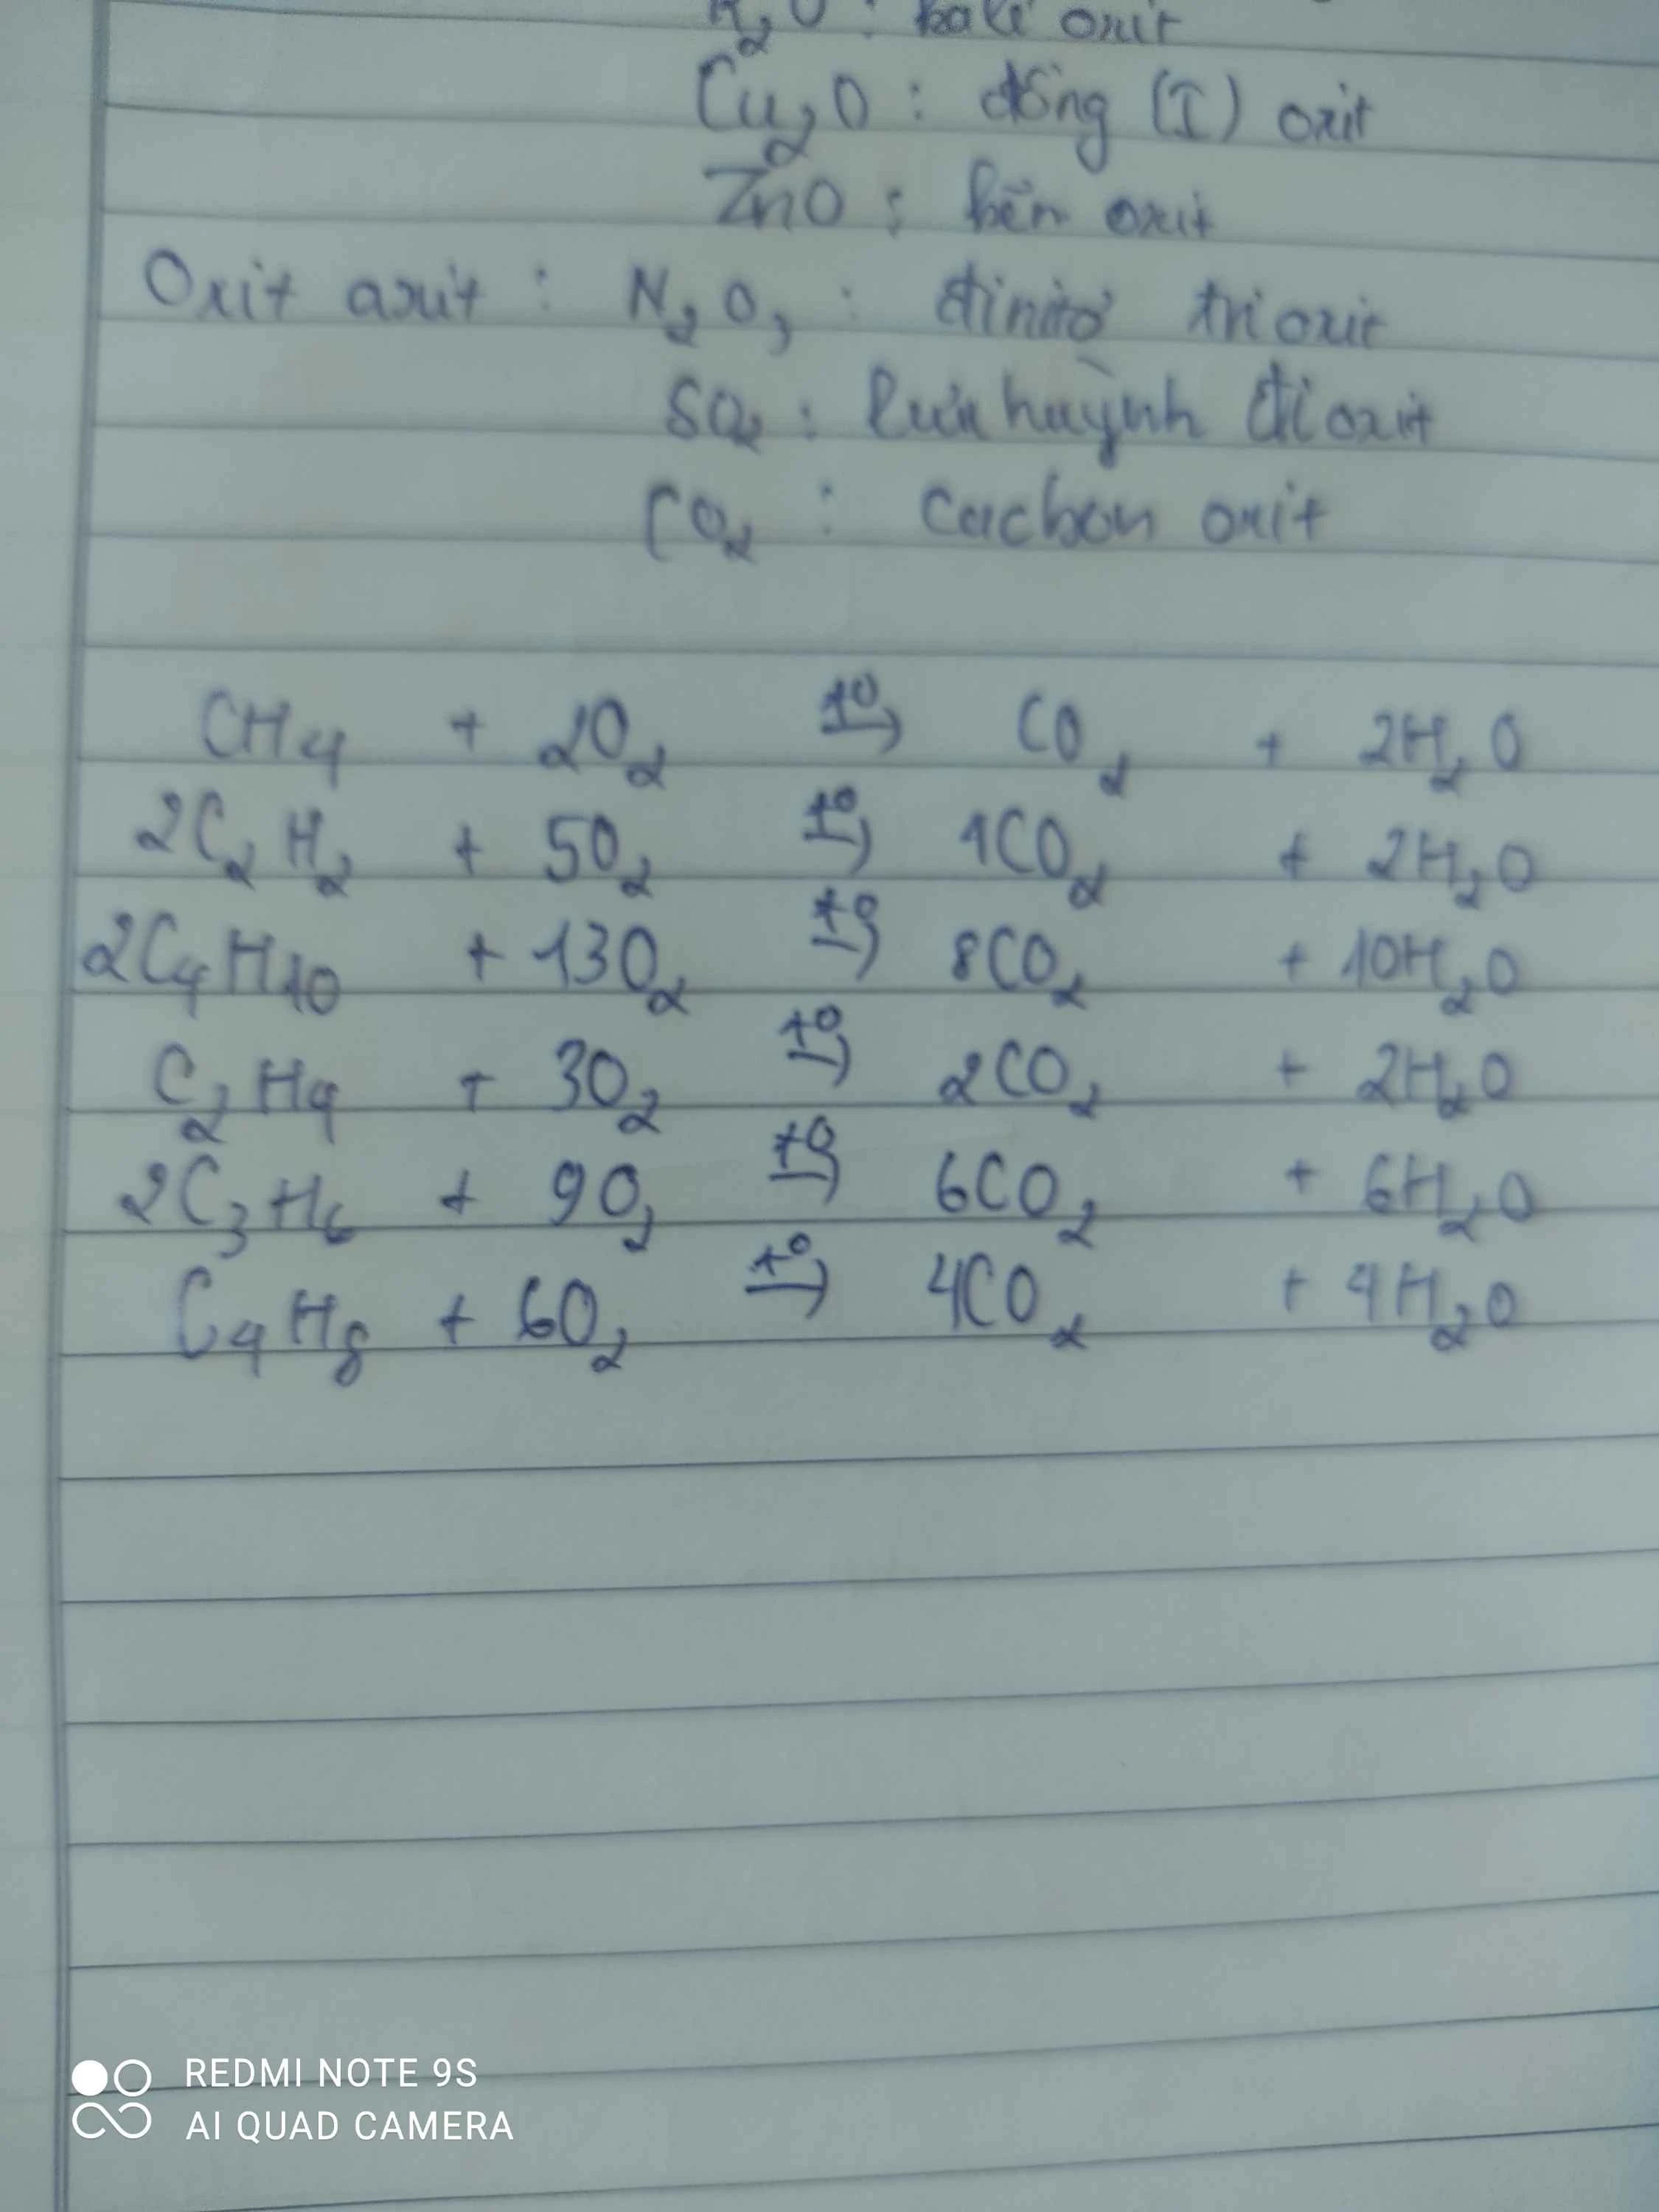 K₂O : kali oxit
Cu₂O : đồng (I) oxit
ZnO : kẽm oxit
Oxit axit : N₂O₃ : đinitơ trioxit
SO₂ : lưu huỳnh đioxit
CO₂ : cacbon oxit
CH₄ + 2O₂ →(t⁰) CO₂ + 2H₂O
2C₂H₂ + 5O₂ →(t⁰) 4CO₂ + 2H₂O
2C₄H₁₀ + 13O₂ →(t⁰) 8CO₂ + 10H₂O
C₂H₄ + 3O₂ →(t⁰) 2CO₂ + 2H₂O
2C₃H₆ + 9O₂ →(t⁰) 6CO₂ + 6H₂O
C₄H₈ + 6O₂ →(t⁰) 4CO₂ + 4H₂O
REDMI NOTE 9S
AI QUAD CAMERA